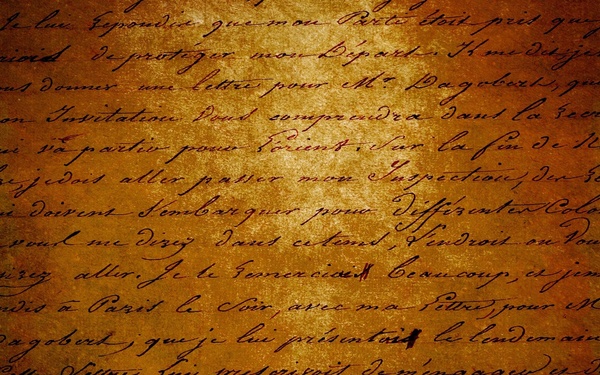 Je lui Repondis que mon Parti étoit pris que
de protéger mon Départ. Il me dit, je
vous donner une lettre pour Mr. Dagobert, que
on Invitation Vous comprendra dans la
qui va partir pour Lorient. Sur la fin de
je dois aller passer mon Inspection, des
qui doivent s'embarquer pour différentes Colo
voul me direz dans cetems, L'endroit ou Vou
irez aller. Je le Remerciais beaucoup, et
dis à Paris le Soir, avec ma Lettre, pour M
Dagobert, que je lui présentois le lendemain
Lettre Lui prescrivoit de ménager et